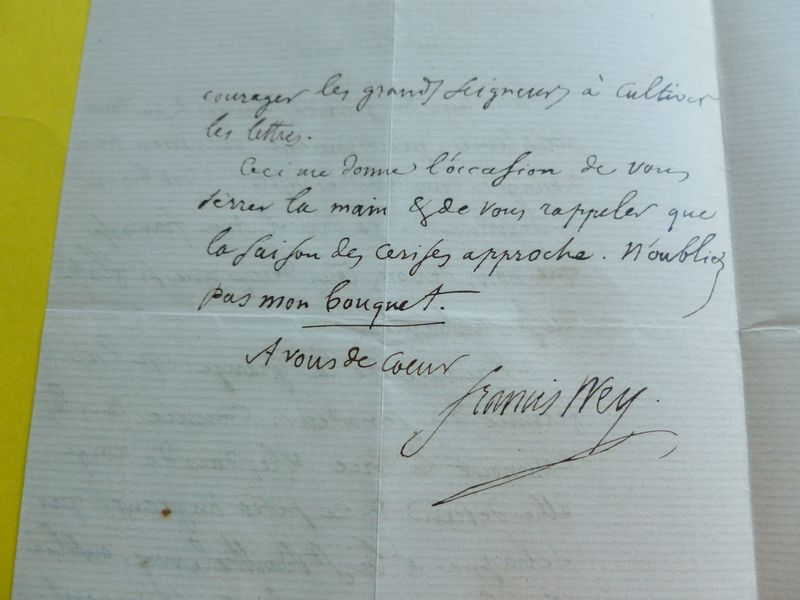 courager les grands seigneurs à cultiver
les lettres.
Ceci me donne l'occasion de vous
serrer la main & de vous rappeler que
la saison des cerises approche. N'oubliez
pas mon bouquet.
A vous de coeur
Francis Wey.